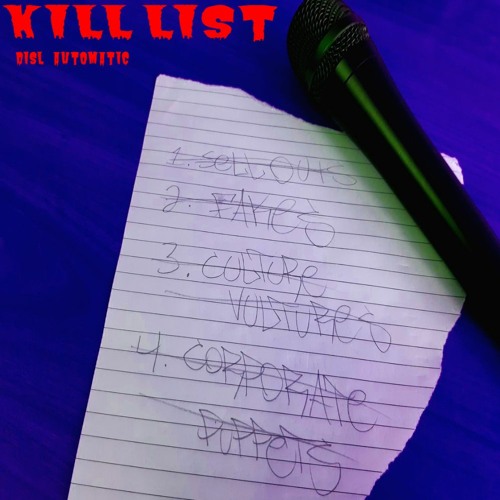 KILL LIST
DISL AUTOMATIC
1. SELLOUTS
2. FAKES
3. CULTURE
VULTURES
4. CORPORATE
PUPPETS